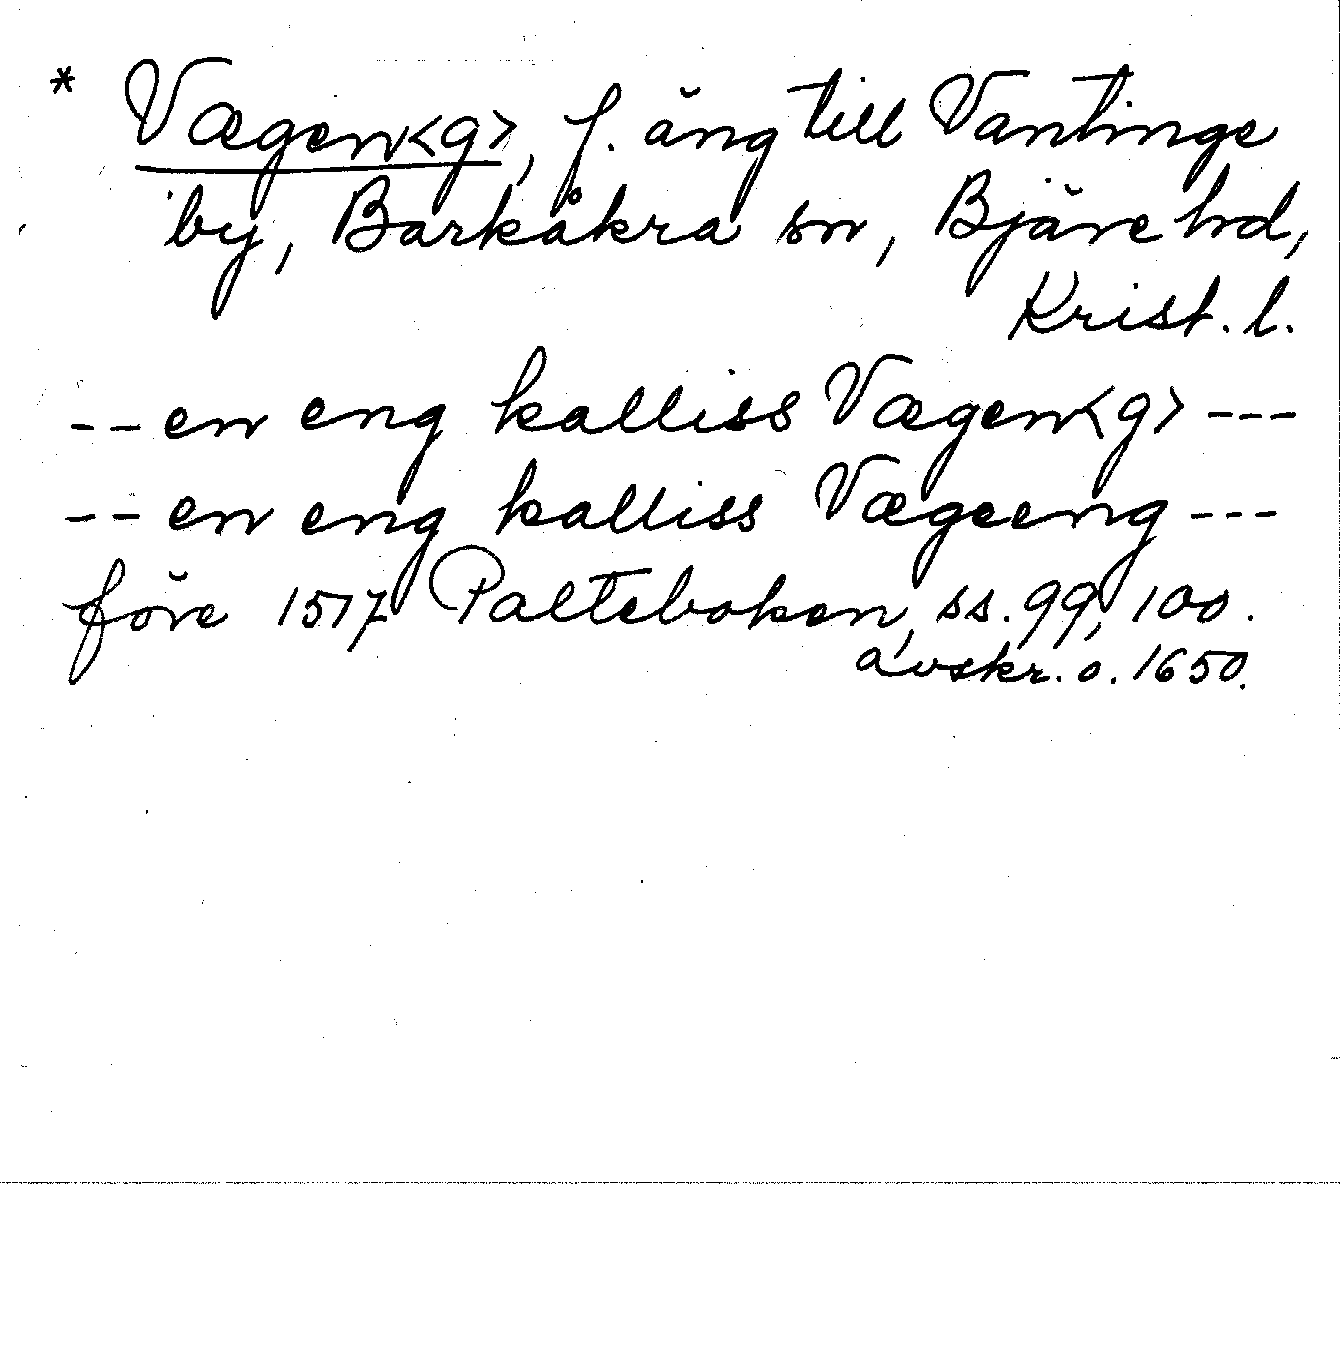 * Vægen<g>, f. äng till Vantinge
by, Barkåkra sn, Bjäre hd,
Krist. l.
-- en eng kalliss Vægen<g> ---
-- en eng kalliss Vægeeng ---
före 1517 Palteboken, ss. 99, 100.
avskr. o. 1650.